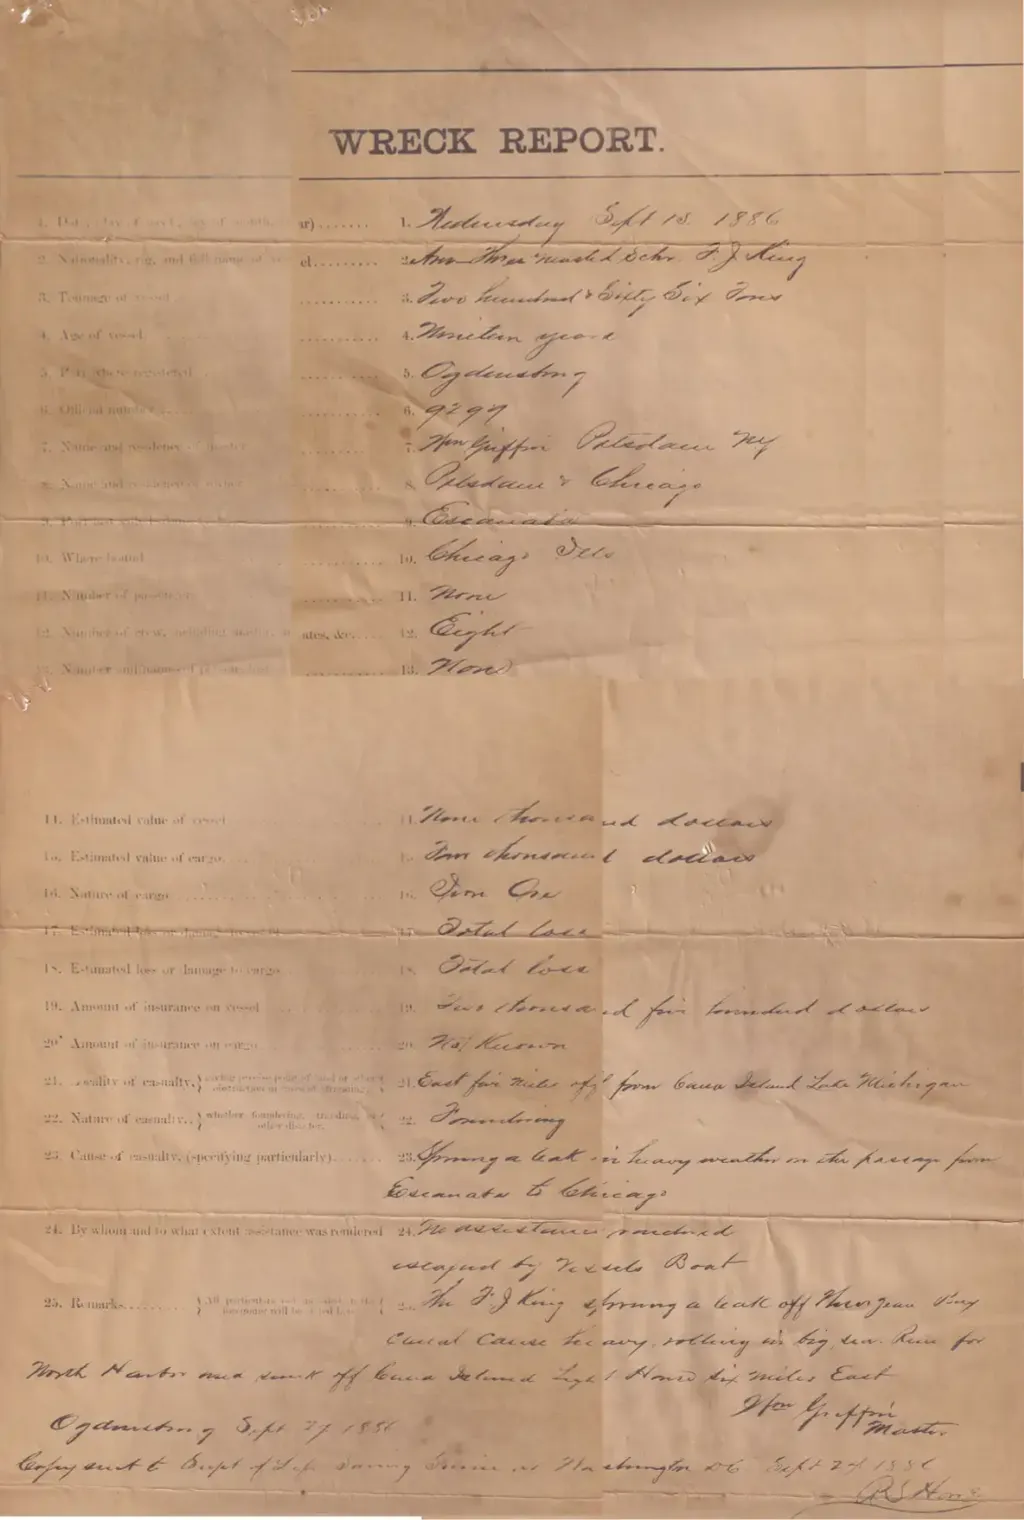 WRECK REPORT.
ar)....... 1. Wednesday Sept 15. 1886
2. Nationality, rig, and full name of vessel......... 2. Am Three Masted Schr. F. J. King
3. Tonnage of vessel .......... 3. Two hundred & Sixty Six Tons
4. Age of vessel .......... 4. Nineteen years
5. Port where registered .......... 5. Ogdensburg
6. Official number .......... 6. 9297
7. Name and residence of master .......... 7. Wm Griffin Potsdam NY
8. Name and residence of .......... 8. Potsdam & Chicago
9. .......... 9. Escanaba
10. Where bound .......... 10. Chicago Ills
11. Number of passengers .......... 11. None
12. Number of crew, including master, mates, &c..... 12. Eight
13. Number and names of .......... 13. None
14. Estimated value of vessel 14. thousand dollars
15. Estimated value of cargo 15. thousand dollars
16. Nature of cargo 16. Iron Ore
17. Estimated loss or damage to vessel 17. Total loss
18. Estimated loss or damage to cargo 18. Total loss
19. Amount of insurance on vessel 19. thousand five hundred dollars
20. Amount of insurance on cargo 20. Not Known
21. Locality of casualty, 21. East five miles off from Cana Island Lake Michigan
22. Nature of casualty.. whether foundering, stranding, or other disaster. 22. Foundering
23. Cause of casualty, (specifying particularly)...... 23. Sprung a leak in heavy weather on the passage from
Escanaba to Chicago
24. By whom and to what extent assistance was rendered 24. No assistance rendered
escaped by Vessels Boat
25. Remarks......... 25. The F. J. King sprung a leak off Sturgeon Bay
Canal Cause heavy rolling in big sea. Run for
North Harbor and sunk off Cana Island Light House six miles East
Wm Griffin
Master
Ogdensburg Sept 27 1886
Copy sent to Supt of Life Saving Service at Washington DC Sept 27 1886